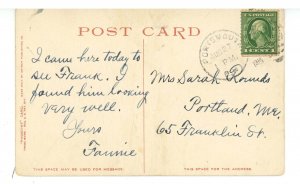 POST CARD
I came here today to
see Frank. I
found him looking
very well.
Yours
Fannie
Mrs Sarah Rounds
Portland, Me.
65 Franklin St.
THIS SPACE MAY BE USED FOR MESSAGE.
THIS SPACE FOR THE ADDRESS.